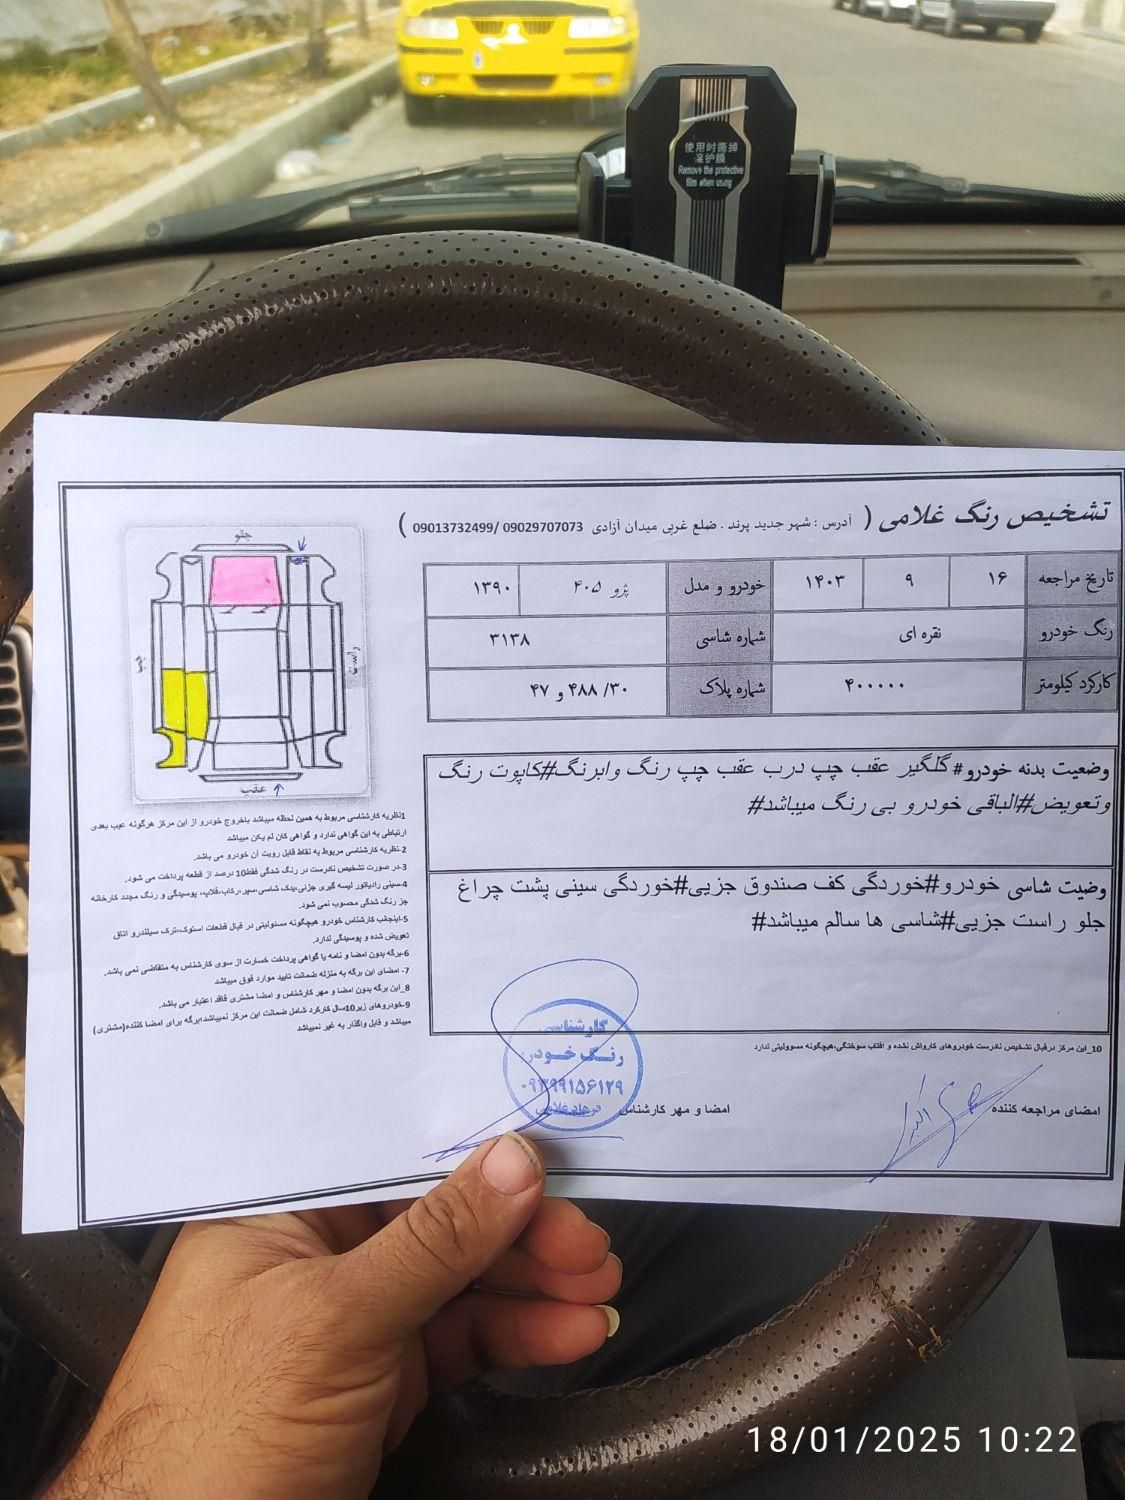 使用时撕掉
保护膜
Remove the protective
film when using
تشخیص رنگ غلامی ( آدرس : شهر جدید پرند . ضلع غربی میدان آزادی 09029707073 /09013732499 )
تاریخ مراجعه ۱۶ ۹ ۱۴۰۳ خودرو و مدل پژو ۴۰۵ ۱۳۹۰
رنگ خودرو نقره ای شماره شاسی ۳۱۳۸
کارکرد کیلومتر ۴۰۰۰۰۰ شماره پلاک ۳۰/ ۴۸۸ و ۴۷
جلو
چپ
راست
عقب
وضعیت بدنه خودرو# گلگیر عقب چپ درب عقب چپ رنگ وابرنگ#کاپوت رنگ
وتعویض#الباقی خودرو بی رنگ میباشد#
وضیت شاسی خودرو#خوردگی کف صندوق جزیی#خوردگی سینی پشت چراغ
جلو راست جزیی#شاسی ها سالم میباشد#
1نظریه کارشناسی مربوط به همین لحظه میباشد باخروج خودرو از این مرکز هرگونه عیب بعدی
ارتباطی به این گواهی ندارد و گواهی کان لم یکن میباشد
2-نظریه کارشناسی مربوط به نقاط قابل رویت آن خودرو می باشد.
3-در صورت تشخیص نادرست در رنگ شدگی فقط10 درصد از قطعه پرداخت می شود.
4-سینی رادیاتور لیسه گیری جزئی،یدک شاسی،سپر،رکاب،قلاپ، پوسیدگی و رنگ مجدد کارخانه
جز رنگ شدگی محسوب نمی شود.
5-اینجانب کارشناس خودرو هیچگونه مسئولیتی در قبال قطعات استوک،ترک سیلندرو اتاق
تعویض شده و پوسیدگی ندارد.
6-برگه بدون امضا و نامه یا گواهی پرداخت خسارت از سوی کارشناس به متقاضی نمی باشد.
7- امضای این برگه به منزله ضمانت تایید موارد فوق میباشد
8_این برگه بدون امضا و مهر کارشناس و امضا مشتری فاقد اعتبار می باشد.
9-خودروهای زیر10سال کارکرد شامل ضمانت این مرکز نمیباشد/برگه برای امضا کننده(مشتری)
میباشد و قابل واگذار به غیر نمیباشد
10_این مرکز درقبال تشخیص نادرست خودروهای کارواش نشده و افتاب سوختگی،هیچگونه مسوولیتی ندارد
امضای مراجعه کننده
اکبر
امضا و مهر کارشناس
کارشناسی
رنگ خودرو
۰۹۳۹۹۱۵۶۱۲۹
18/01/2025 10:22